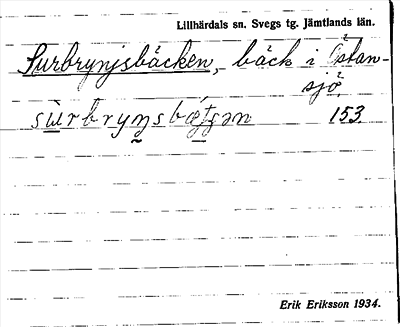 Lillhärdals sn. Svegs tg. Jämtlands län.
Surbrynjsbäcken, bäck i Östan-
sjö.
153.
Erik Eriksson 1934.